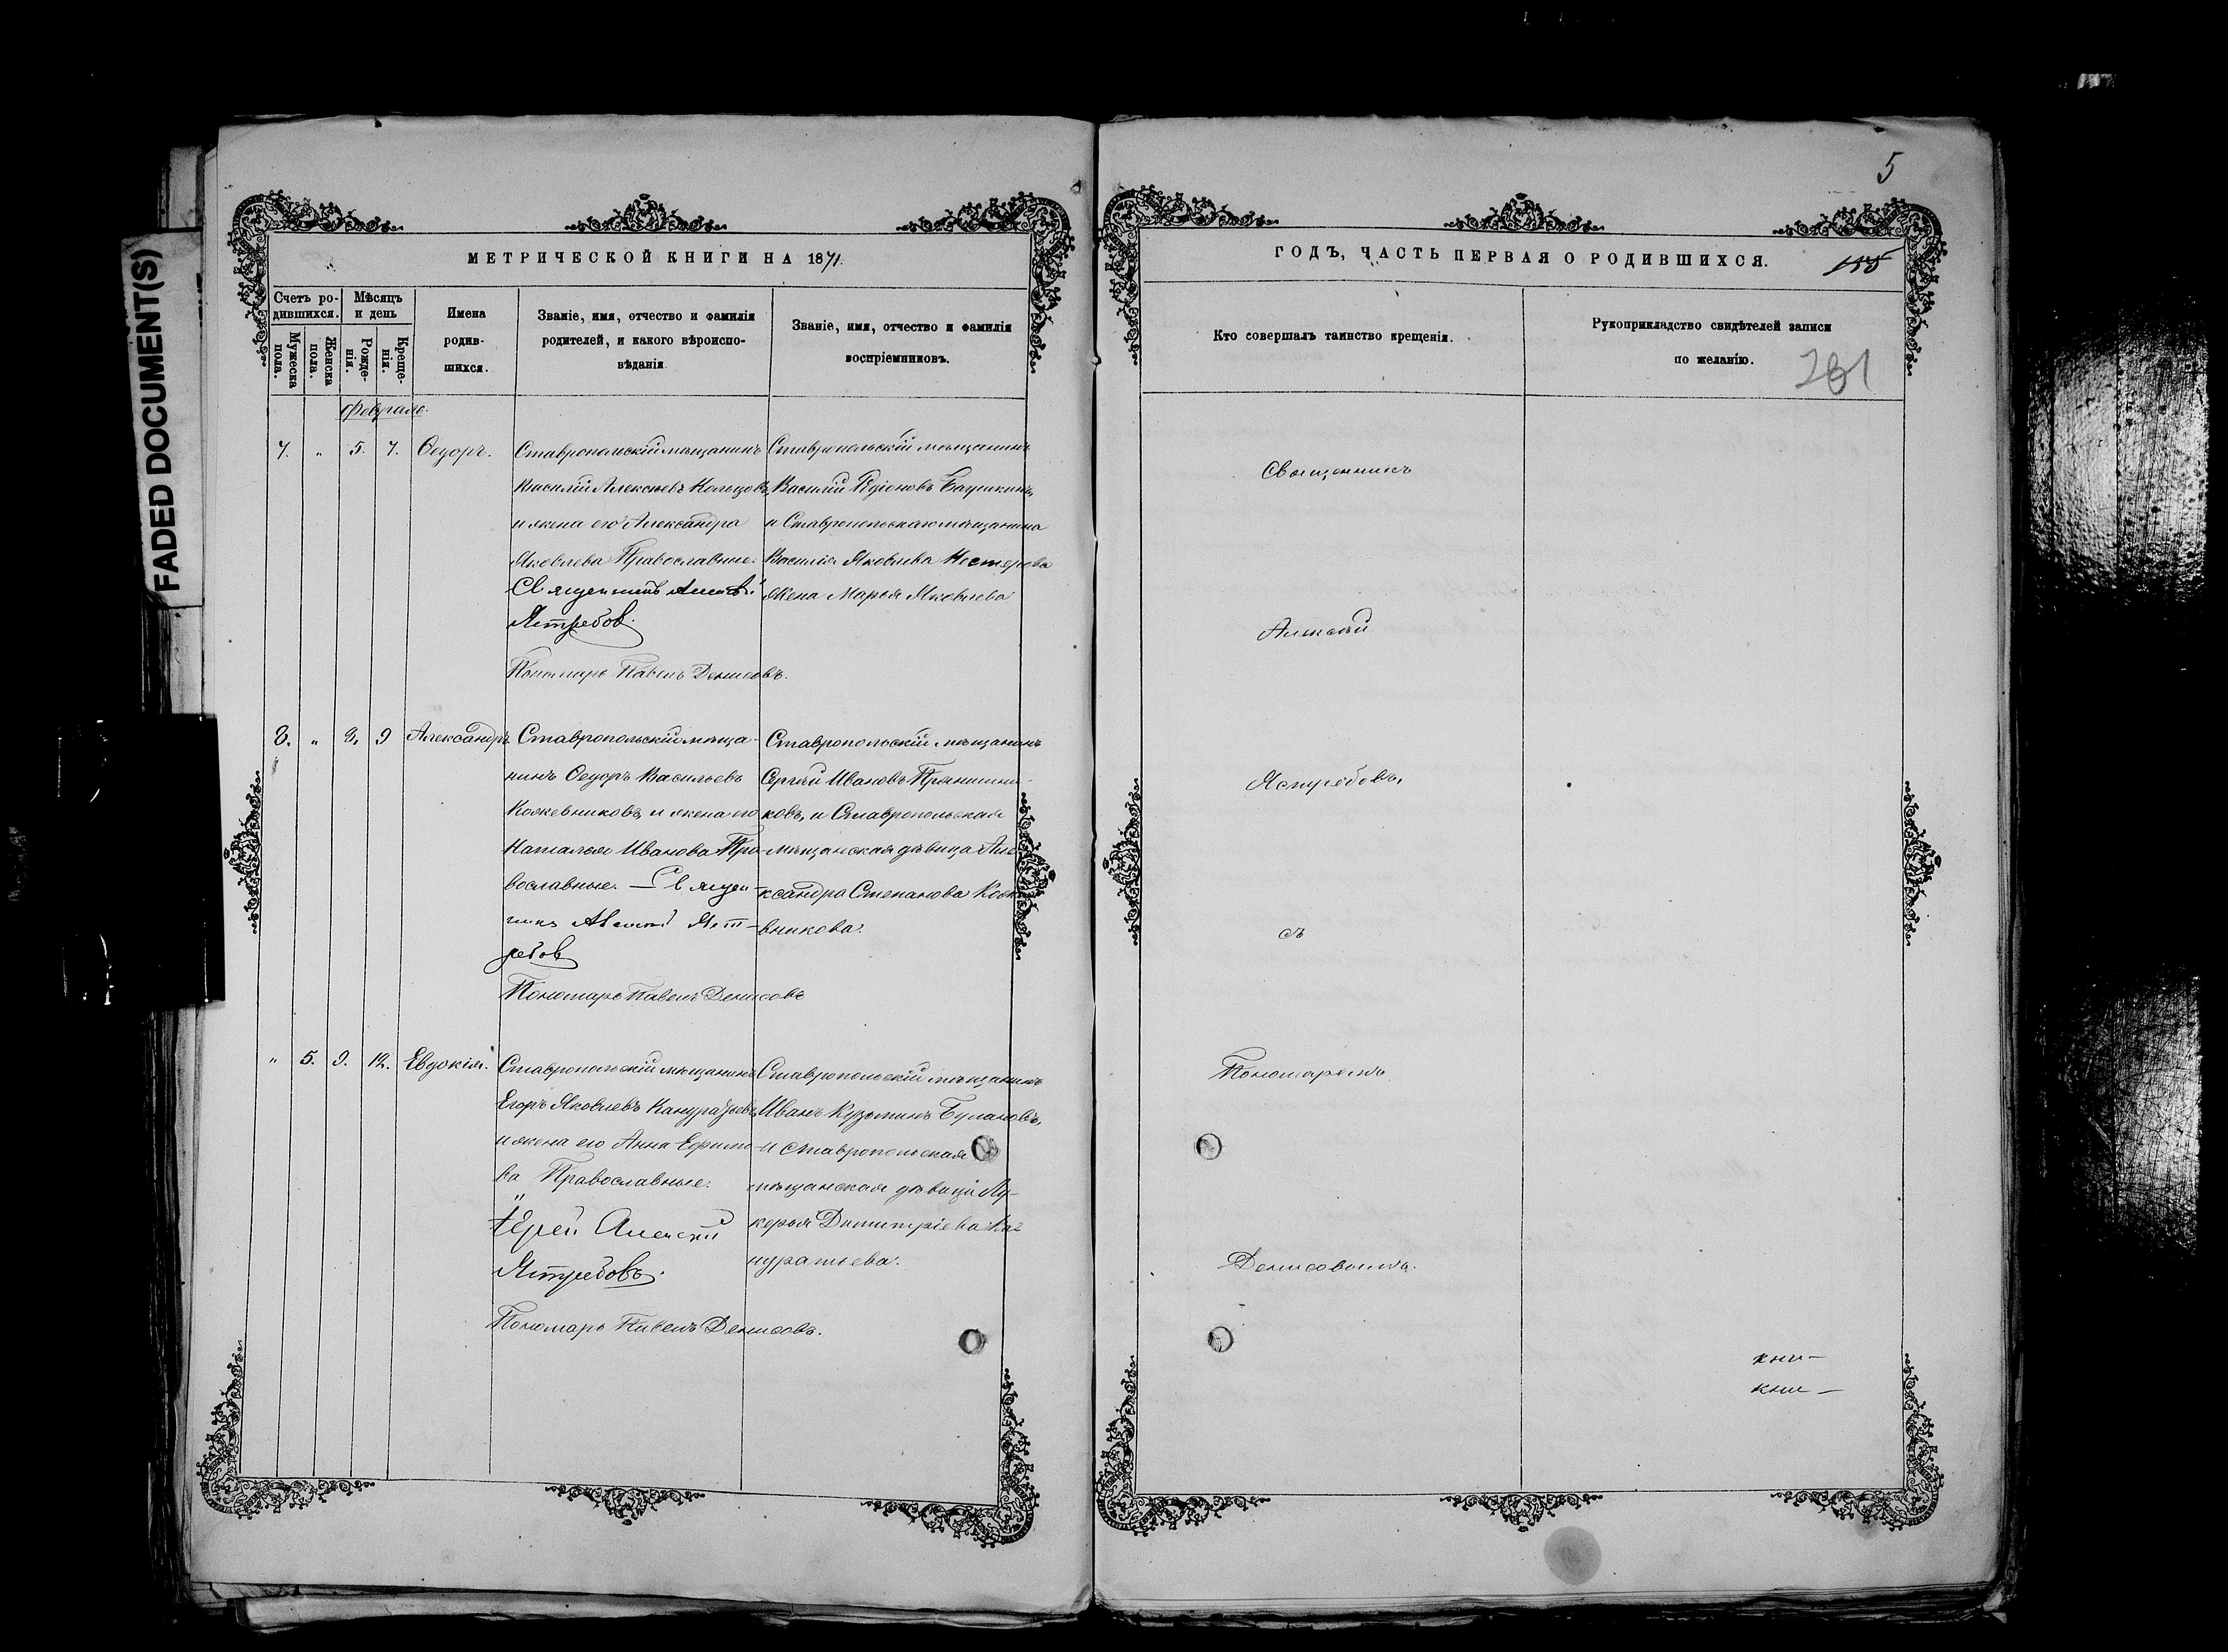 FADED DOCUMENT(S)
МЕТРИЧЕСКОЙ КНИГИ НА 1871.
Счетъ ро-
дившихся.
Мѣсяцъ
и день
Мужеска
пола.
Женска
пола.
Рожде-
нія.
Креще-
нія.
Имена
родив-
шихся.
Званіе, имя, отчество и фамилія
родителей, и какого вѣроиспо-
вѣданія
Званіе, имя, отчество и фамилія
воспріемниковъ.
Февраль.
7. " 5. 7. Ѳедоръ.
Ставропольскій мѣщанинъ
Василій Алексѣевъ Кольцовъ,
и жена его Александра
Яковлева Православные.
Священникъ Алексѣй
Ястребов.
Пономарь Павелъ Денисовъ.
Ставропольскій мѣщанинъ
Василій Родіоновъ
и Ставропольскаго мѣщанина
Василія Яковлева Нестерова
жена Марья Яковлева
8. " 8. 9 Александръ
Ставропольскій мѣща-
нинъ Ѳедоръ Васильевъ
Кожевниковъ, и жена его
Наталья Иванова Пра-
вославные. — Священ-
никъ Алексей Яст-
ребов
Пономарь Павелъ Денисовъ
Ставропольскій мѣщанинъ
Сергѣй Ивановъ Прянишни-
ковъ, и Ставропольская
мѣщанская дѣвица Але-
ксандра Степанова Коже-
вникова.
" 5. 9. 12. Евдокія.
Ставропольскій мѣщанинъ
Егоръ Яковлевъ
и жена его Анна Ефимо-
ва Православные.
Іерей Алексѣй
Ястребовъ.
Пономарь Павелъ Денисовъ.
Ставропольскій мѣщанинъ
Иванъ Кузьминъ Булановъ,
и Ставропольская
мѣщанская дѣвица Лу-
керья Димитріева Ка-
нуратьева.
5
ГОДЪ, ЧАСТЬ ПЕРВАЯ О РОДИВШИХСЯ.
155
Кто совершалъ таинство крещенія.
Рукоприкладство свидѣтелей записи
по желанію.
281
Священникъ
Алексѣй
Ястребовъ,
съ
Пономаремъ
Денисовымъ.
кни-
кни-